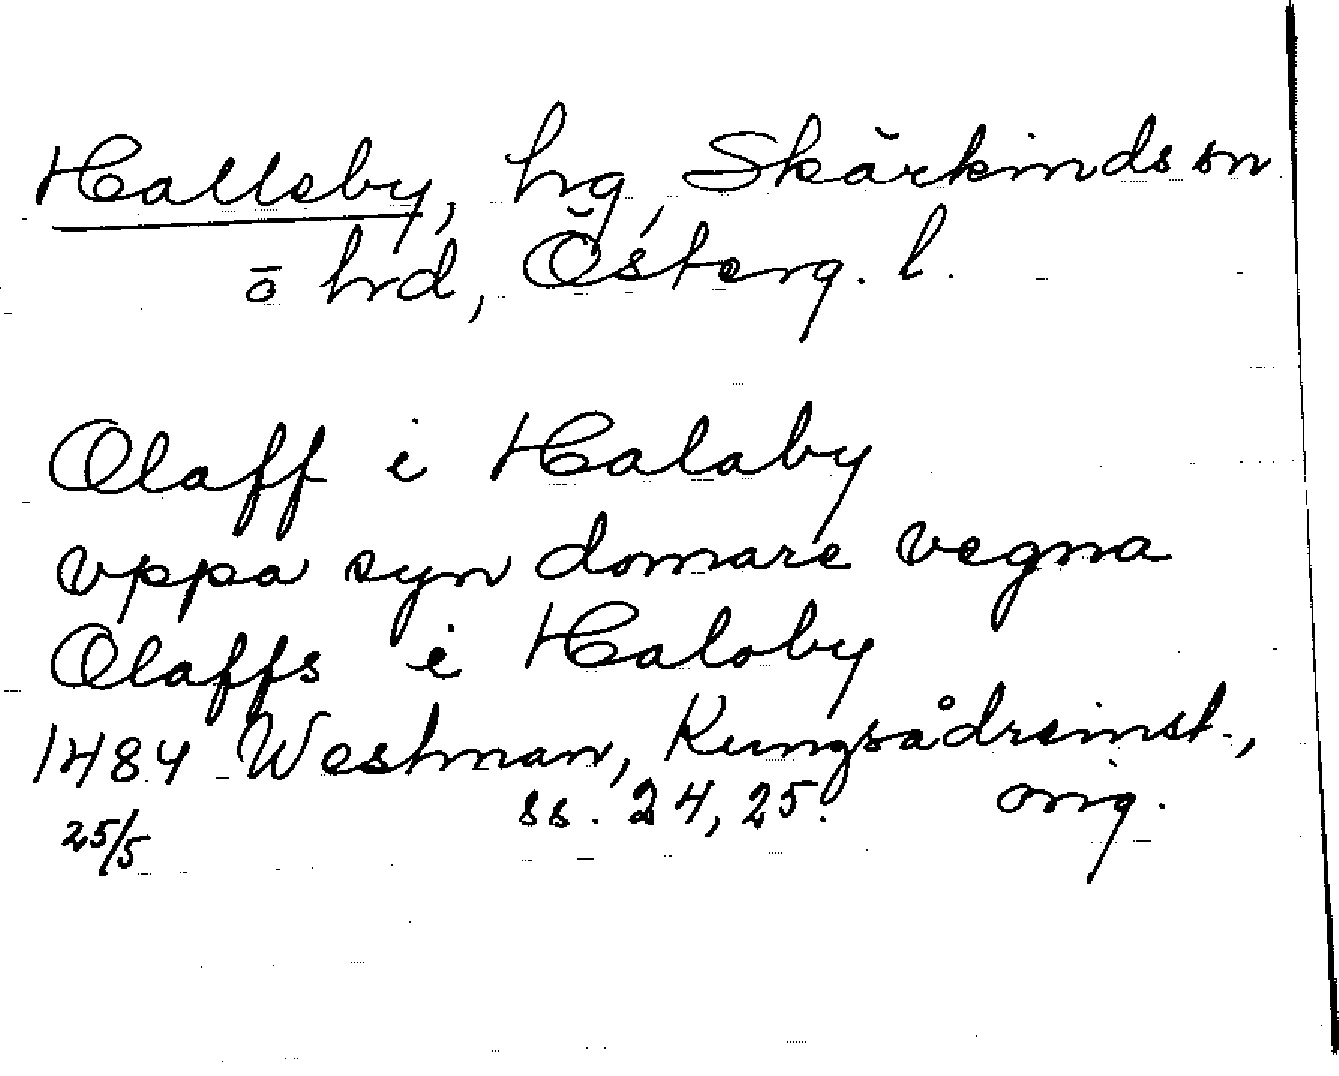 Halleby, hg, Skärkinds sn
o hrd, Österg. l.
Olaff i Halaby
vppa syn domare vegna
Olaffs i Haloby
1484 Westman, Kungsådreinst.,
25/5 ss. 24, 25. orig.